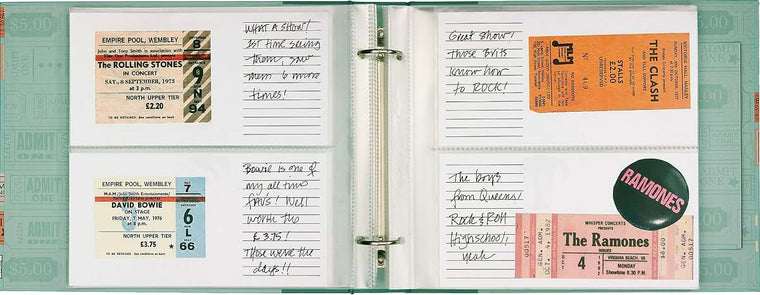 EMPIRE POOL, WEMBLEY
John and Tony Smith in association with
The ROLLING STONES
IN CONCERT
SAT., 8 SEPTEMBER, 1973
at 3 p.m.
NORTH UPPER TIER
£2.20
TO BE RETAINED. See conditions on back
8
9
N
94
WHAT A SHOW!
1ST time seeing
them, saw
them 6 more
times!
EMPIRE POOL, WEMBLEY
DAVID BOWIE
ON STAGE
FRIDAY, 7 MAY, 1976
at 8 p.m.
NORTH UPPER TIER
£3.75
TO BE RETAINED. See conditions on back
7
ENTRANCE
6
L
66
Bowie is one of
my all time
FAV'S! Well
worth the
£3.75!
Those were the
days!!
Great show!
Those Brits
know how
to ROCK!
THE CLASH
STALLS
£2.00
The boys
from Queens!
Rock & Roll
High school!
yeah
RAMONES
WHISPER CONCERTS
PRESENTS
The Ramones
OCT
4
1982
VIRGINIA BEACH, VA.
MONDAY
Showtime 8:30 P.M.
$5.00
ADMIT
ONE
$5.00